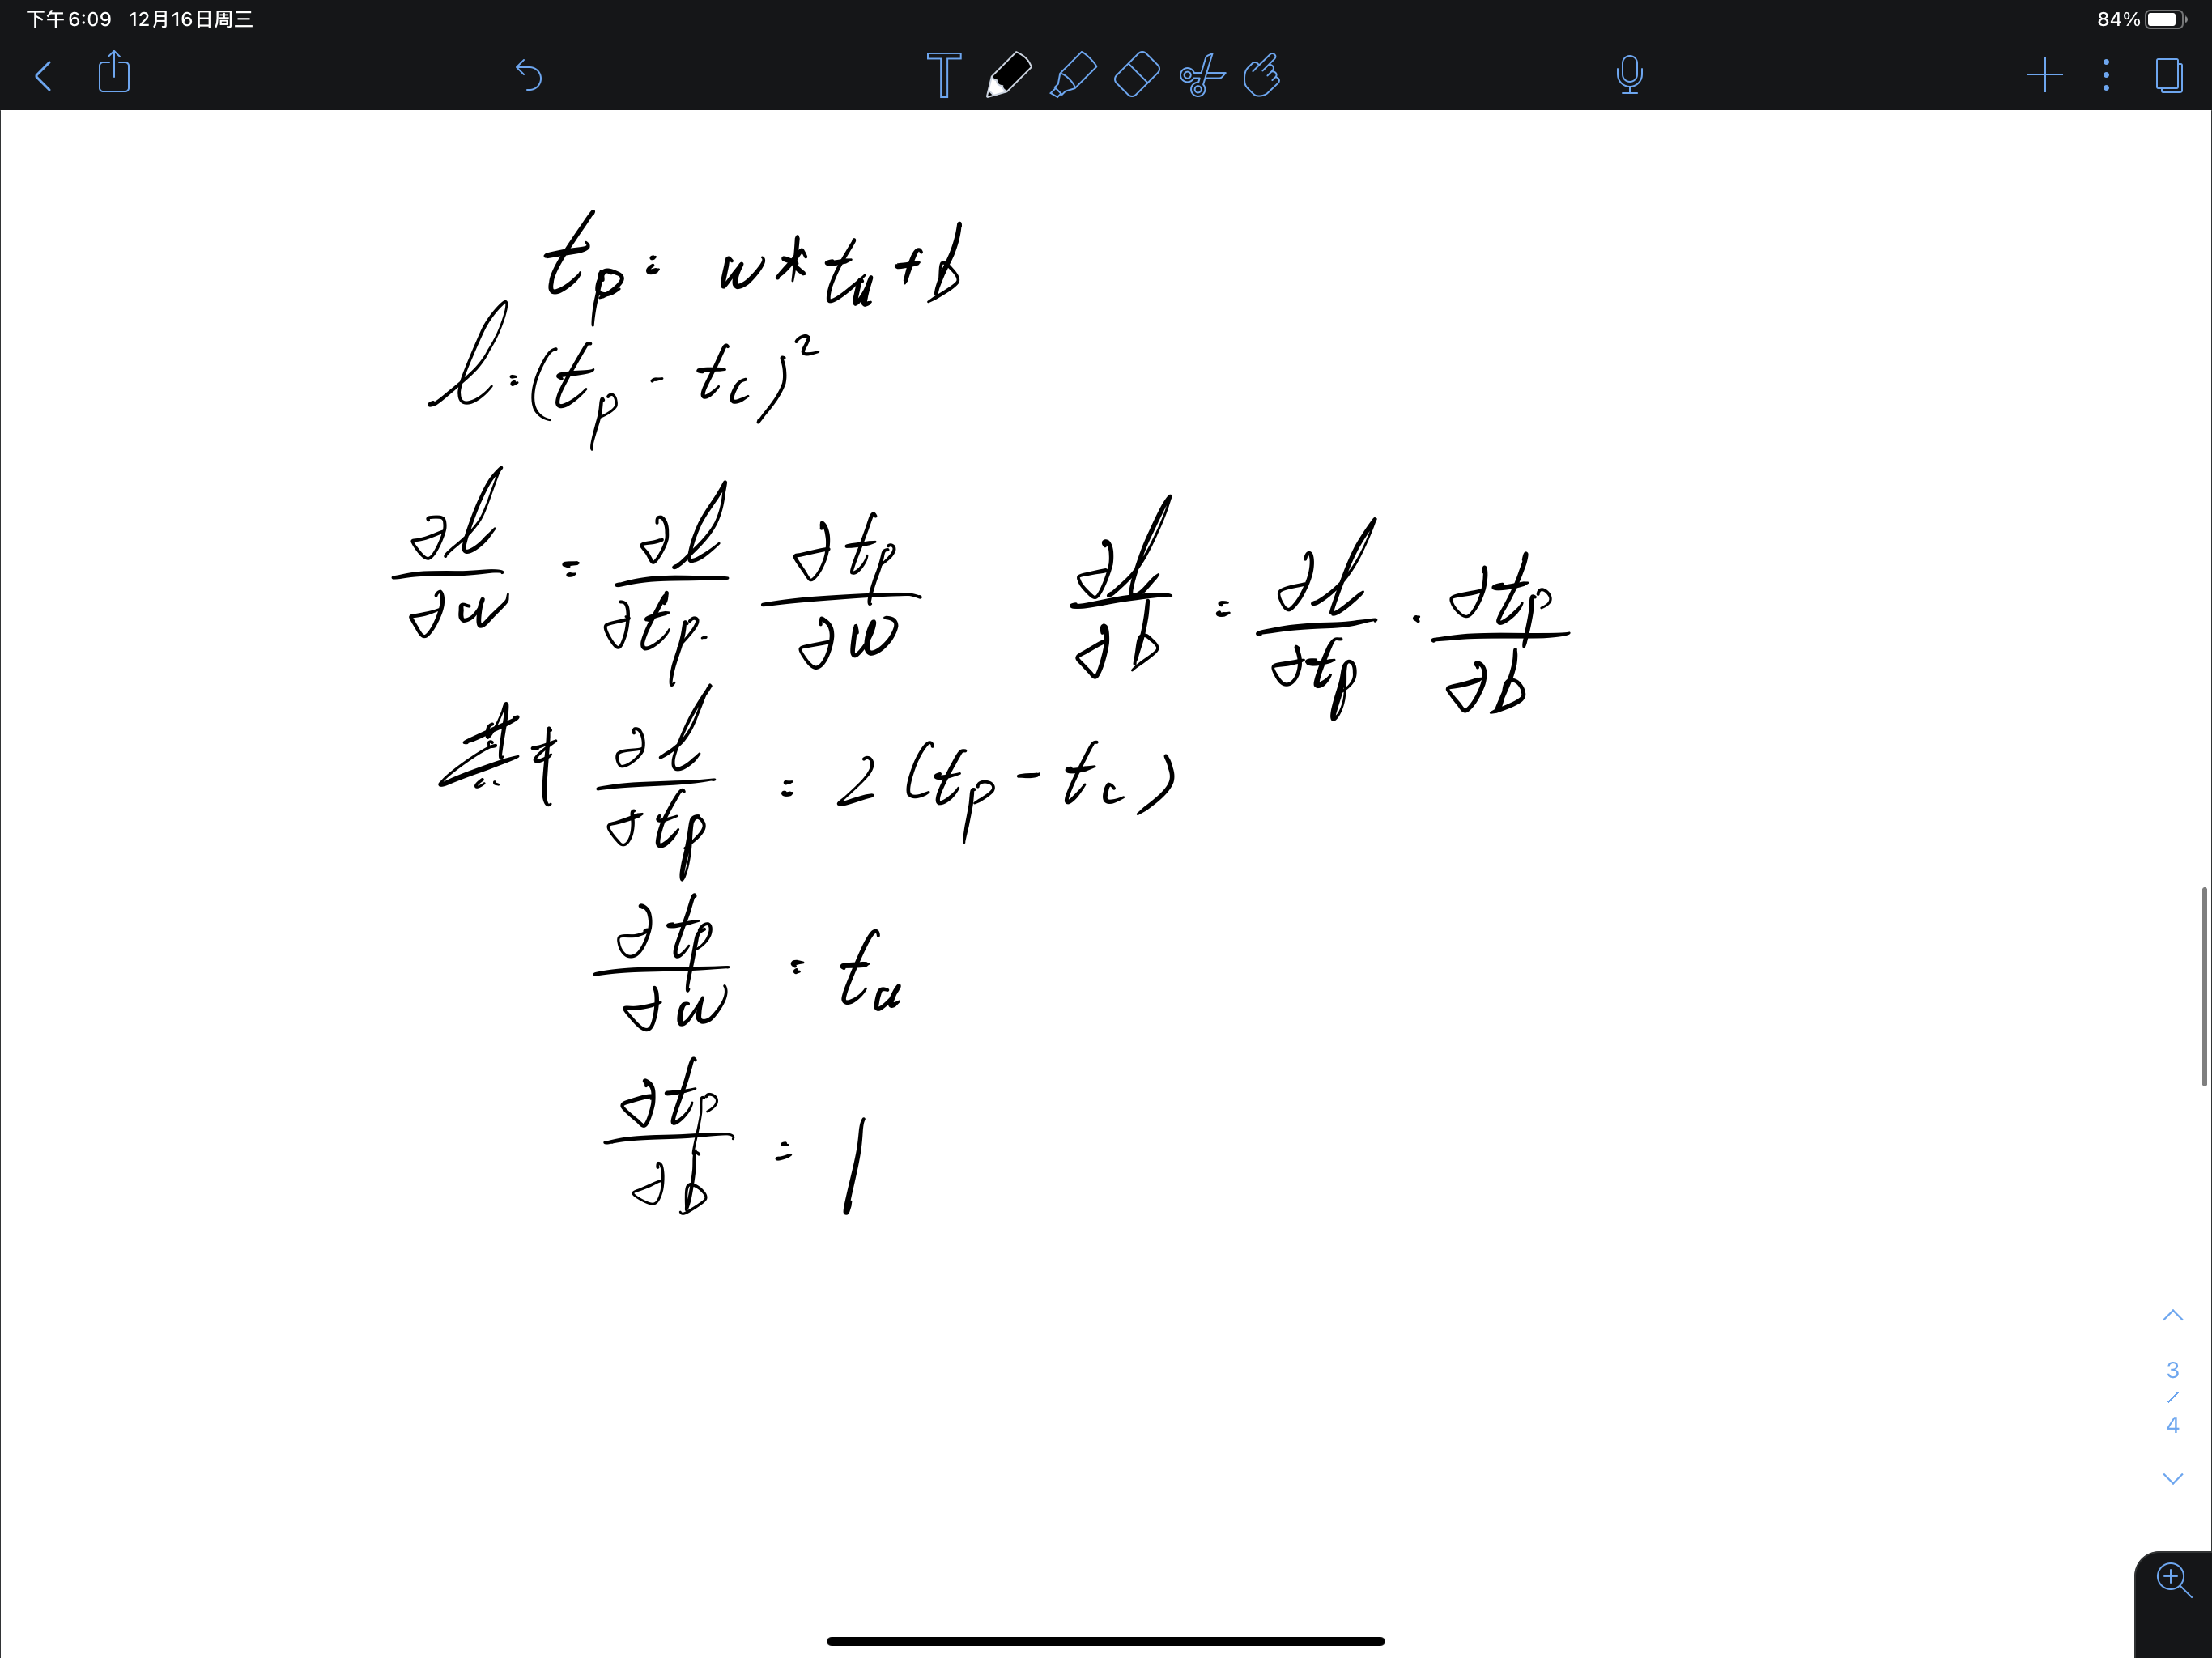 下午6:09 12月16日周三 84%
t_p = w * t_u + b
l = (t_p - t_c)^2
∂l/∂w = ∂l/∂t_p ∂t_p/∂w ∂l/∂b = ∂l/∂t_p · ∂t_p/∂b
其中 ∂l/∂t_p = 2(t_p - t_c)
∂t_p/∂w = t_u
∂t_p/∂b = 1
3
/
4